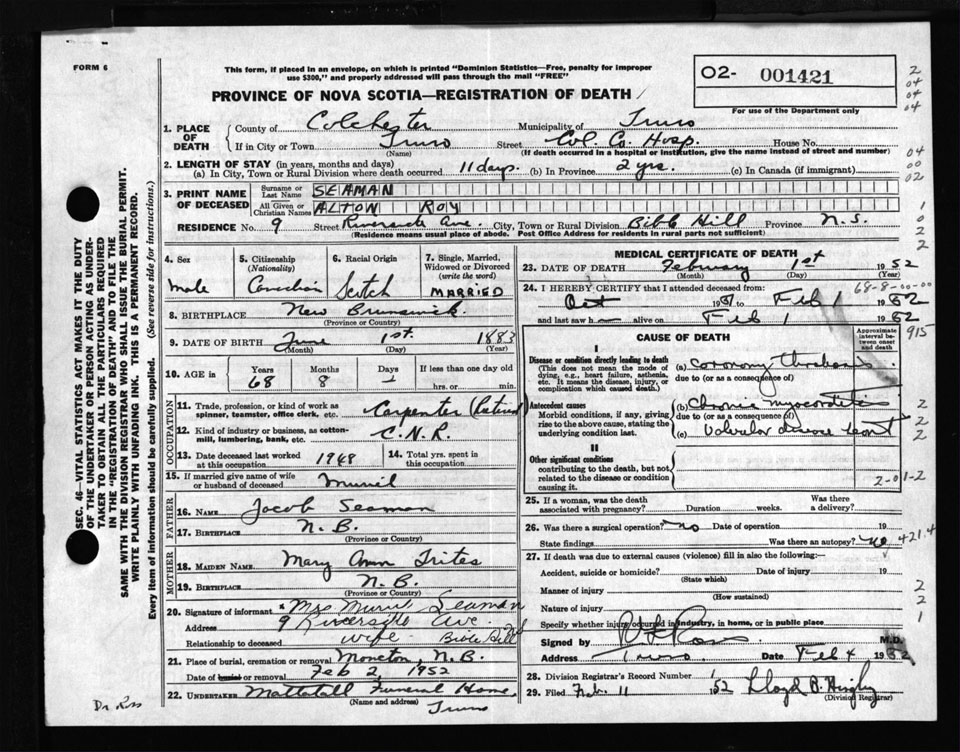 FORM 6
This form, if placed in an envelope, on which is printed "Dominion Statistics—Free, penalty for improper
use $300," and properly addressed will pass through the mail "FREE"
O2- 001421
For use of the Department only
PROVINCE OF NOVA SCOTIA—REGISTRATION OF DEATH
1. PLACE OF DEATH
County of Colchester Municipality of Truro
If in City or Town Truro Street Col. Co. Hosp. House No.
(Name) (If death occurred in a hospital or institution, give the name instead of street and number)
2. LENGTH OF STAY (in years, months and days)
(a) In City, Town or Rural Division where death occurred 11 days. (b) In Province 2 yrs. (c) In Canada (if immigrant)
3. PRINT NAME OF DECEASED
Surname or Last Name SEAMAN
All Given or Christian Names ALTON ROY
RESIDENCE No. 9 Street Riverside Ave. City, Town or Rural Division Bible Hill Province N.S.
(Residence means usual place of abode. Post Office Address for residents in rural parts not sufficient)
4. Sex
male
5. Citizenship
(Nationality)
Canadian
6. Racial Origin
Scotch
7. Single, Married, Widowed or Divorced
(write the word)
MARRIED
8. BIRTHPLACE New Brunswick.
(Province or Country)
9. DATE OF BIRTH June 1st. 1883
(Month) (Day) (Year)
10. AGE in
Years Months Days If less than one day old
68 8 hrs. or min.
OCCUPATION
11. Trade, profession, or kind of work as
spinner, teamster, office clerk, etc. Carpenter (Retired)
12. Kind of industry or business, as cotton-
mill, lumbering, bank, etc. C.N.R.
13. Date deceased last worked
at this occupation 1948
14. Total yrs. spent in
this occupation
15. If married give name of wife
or husband of deceased Muriel
FATHER
16. NAME Jacob Seaman
17. BIRTHPLACE N.B.
(Province or Country)
MOTHER
18. MAIDEN NAME Mary Ann Trites
19. BIRTHPLACE N.B.
(Province or Country)
20. Signature of informant Mrs Muriel Seaman
Address 9 Riverside Ave. Bible Hill
Relationship to deceased wife
21. Place of burial, cremation or removal Moncton, N.B.
Date of burial or removal Feb 2, 1952
22. UNDERTAKER Mattatall Funeral Home,
(Name and address) Truro
MEDICAL CERTIFICATE OF DEATH
23. DATE OF DEATH February 1st 1952
(Month) (Day) (Year)
24. I HEREBY CERTIFY that I attended deceased from: 68-8-00-00
Oct 1951 to Feb 1 1952
and last saw h alive on Feb 1 1952
915
CAUSE OF DEATH
Approximate interval between onset and death
I
Disease or condition directly leading to death
(This does not mean the mode of
dying, e.g., heart failure, asthenia,
etc. It means the disease, injury, or
complication which caused death.)
(a) Coronary thrombosis
due to (or as a consequence of)
Antecedent causes
Morbid conditions, if any, giving
rise to the above cause, stating the
underlying condition last.
(b) Chronic myocarditis
due to (or as a consequence of)
(c) Valvular disease heart
II
Other significant conditions
contributing to the death, but not
related to the disease or condition
causing it.
2-01-2
25. If a woman, was the death
associated with pregnancy? Duration weeks. Was there a delivery?
26. Was there a surgical operation? no Date of operation 19
State findings Was there an autopsy? no
421.4
27. If death was due to external causes (violence) fill in also the following:—
Accident, suicide or homicide? Date of injury 19
(State which)
Manner of injury
(How sustained)
Nature of injury
Specify whether injury occurred in industry, in home, or in public place
Signed by Ross M.D.
Address Truro. Date Feb 4 1952
28. Division Registrar's Record Number
29. Filed Feb. 11 1952 Lloyd B.
(Division Registrar)
Dr Ross
SEC. 46—VITAL STATISTICS ACT MAKES IT THE DUTY
OF THE UNDERTAKER OR PERSON ACTING AS UNDER-
TAKER TO OBTAIN ALL THE PARTICULARS REQUIRED
IN THE "REGISTRATION OF DEATH" AND TO FILE THE
SAME WITH THE DIVISION REGISTRAR WHO SHALL ISSUE THE BURIAL PERMIT.
WRITE PLAINLY WITH UNFADING INK. THIS IS A PERMANENT RECORD.
Every item of information should be carefully supplied. (See reverse side for instructions.)
2
04
04
04
04
00
02
1
0
2
2
2
2
2
2
2
1